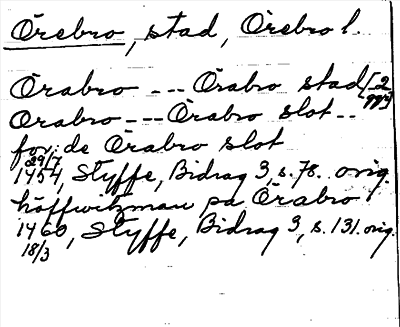 Örebro, stad, Örebro l.
Örabro --- Örabro stad [2 ggr]
Örabro --- Örabro slot --
for de Örabro slot
29/7
1454, Styffe, Bidrag 3, s. 78. orig.
höffwitzman pa Örabro
1460, Styffe, Bidrag 3, s. 131. orig.
18/3